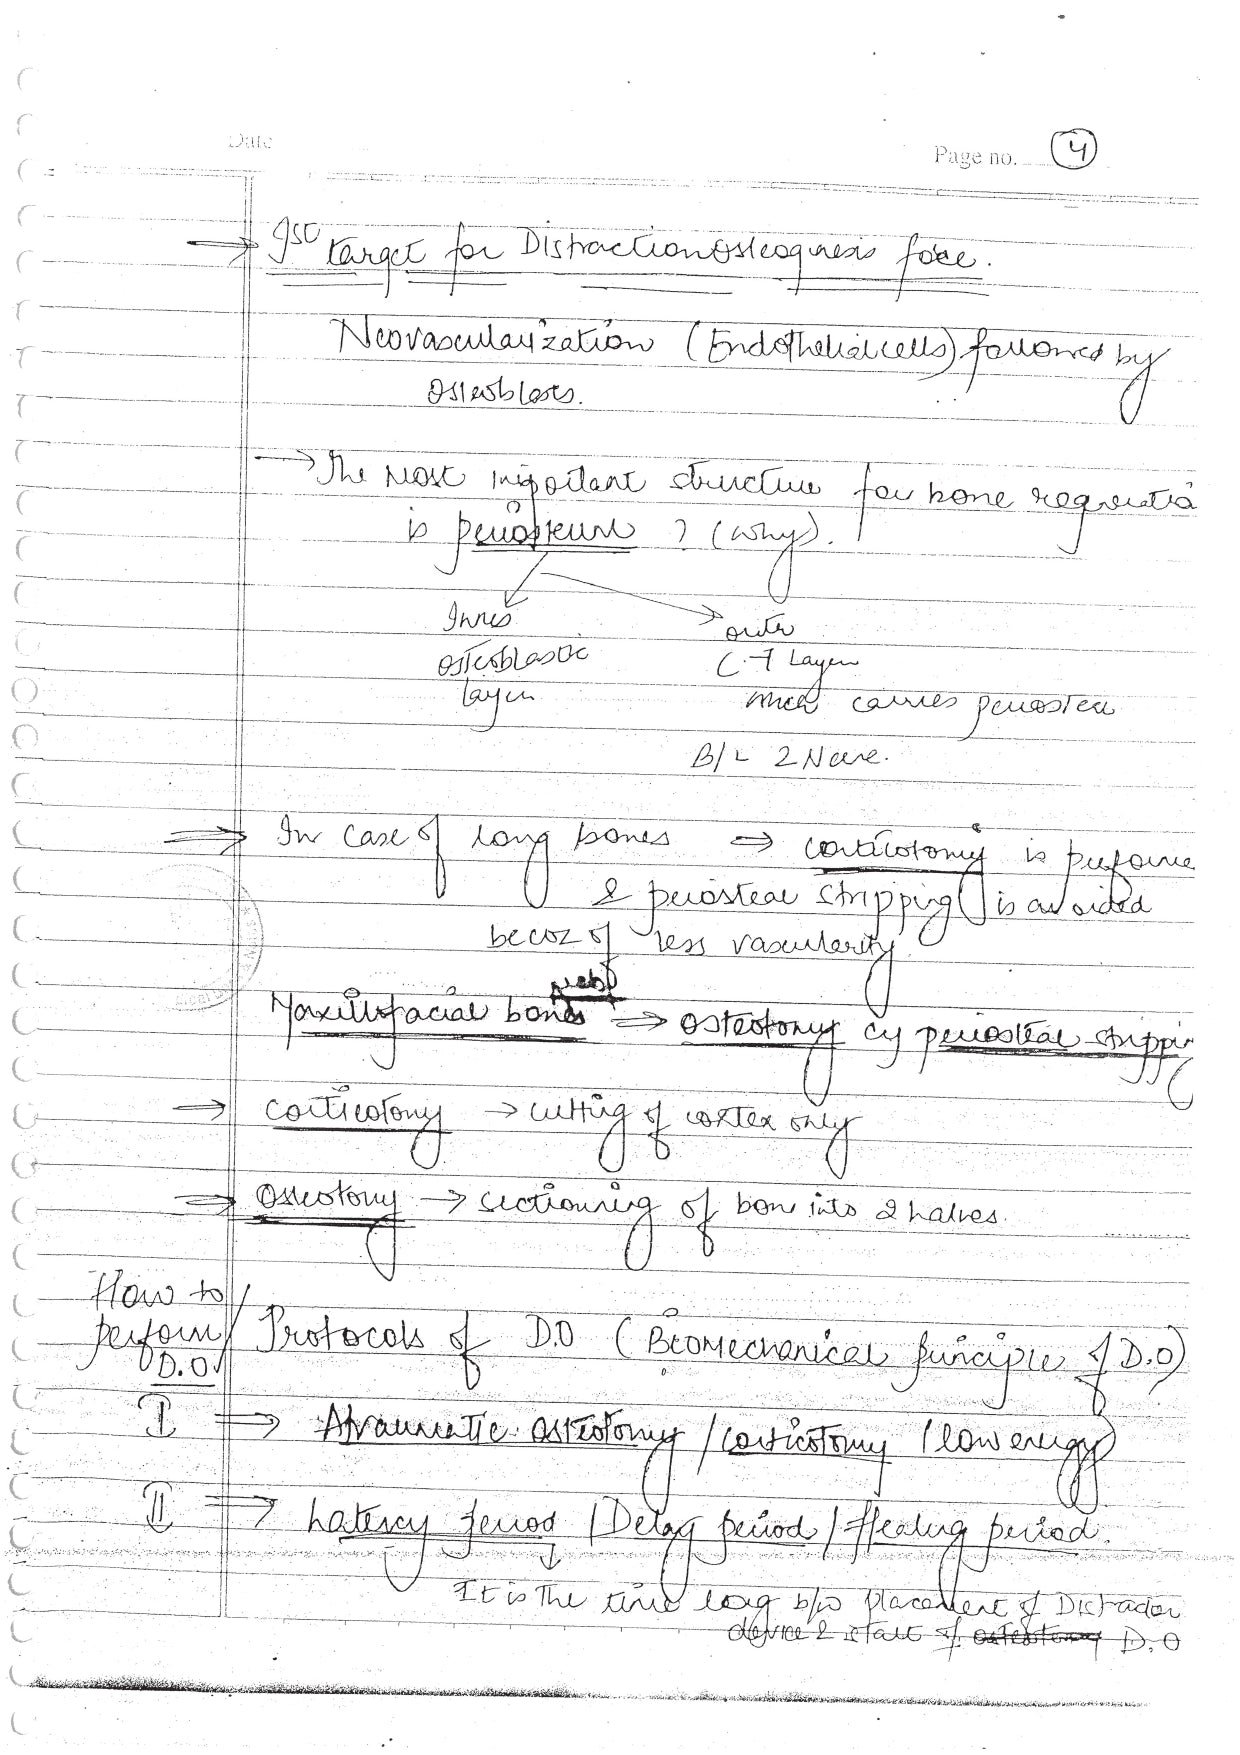 Date
Page no. 4
⇒ Ist target for Distraction Osteogenesis force.
Neovascularization (Endothelial cells) followed by
osteoblasts.
→ The Most important structure for bone regeneratio
is periosteum ? (why).
Inner
osteoblastic
layer
outer
C.T Layer
which carries periosteal
B/L 2 Nerve.
⇒ In case of long bones ⇒ corticotomy is performe
& periosteal stripping is avoided
becoz of less vascularity
Maxillofacial bones ⇒ osteotomy cy periosteal strippin
⇒ corticotomy → cutting of cortex only
⇒ Osteotomy → sectioning of bone into 2 halves.
How to
perform
D.O
Protocols of D.O (Biomechanical principle of D.O)
I ⇒ Atraumatic osteotomy / corticotomy / low energy
II ⇒ Latency period / Delay period / Healing period.
It is the time lag b/w placement of Distractor
device & start of osteotomy D.O